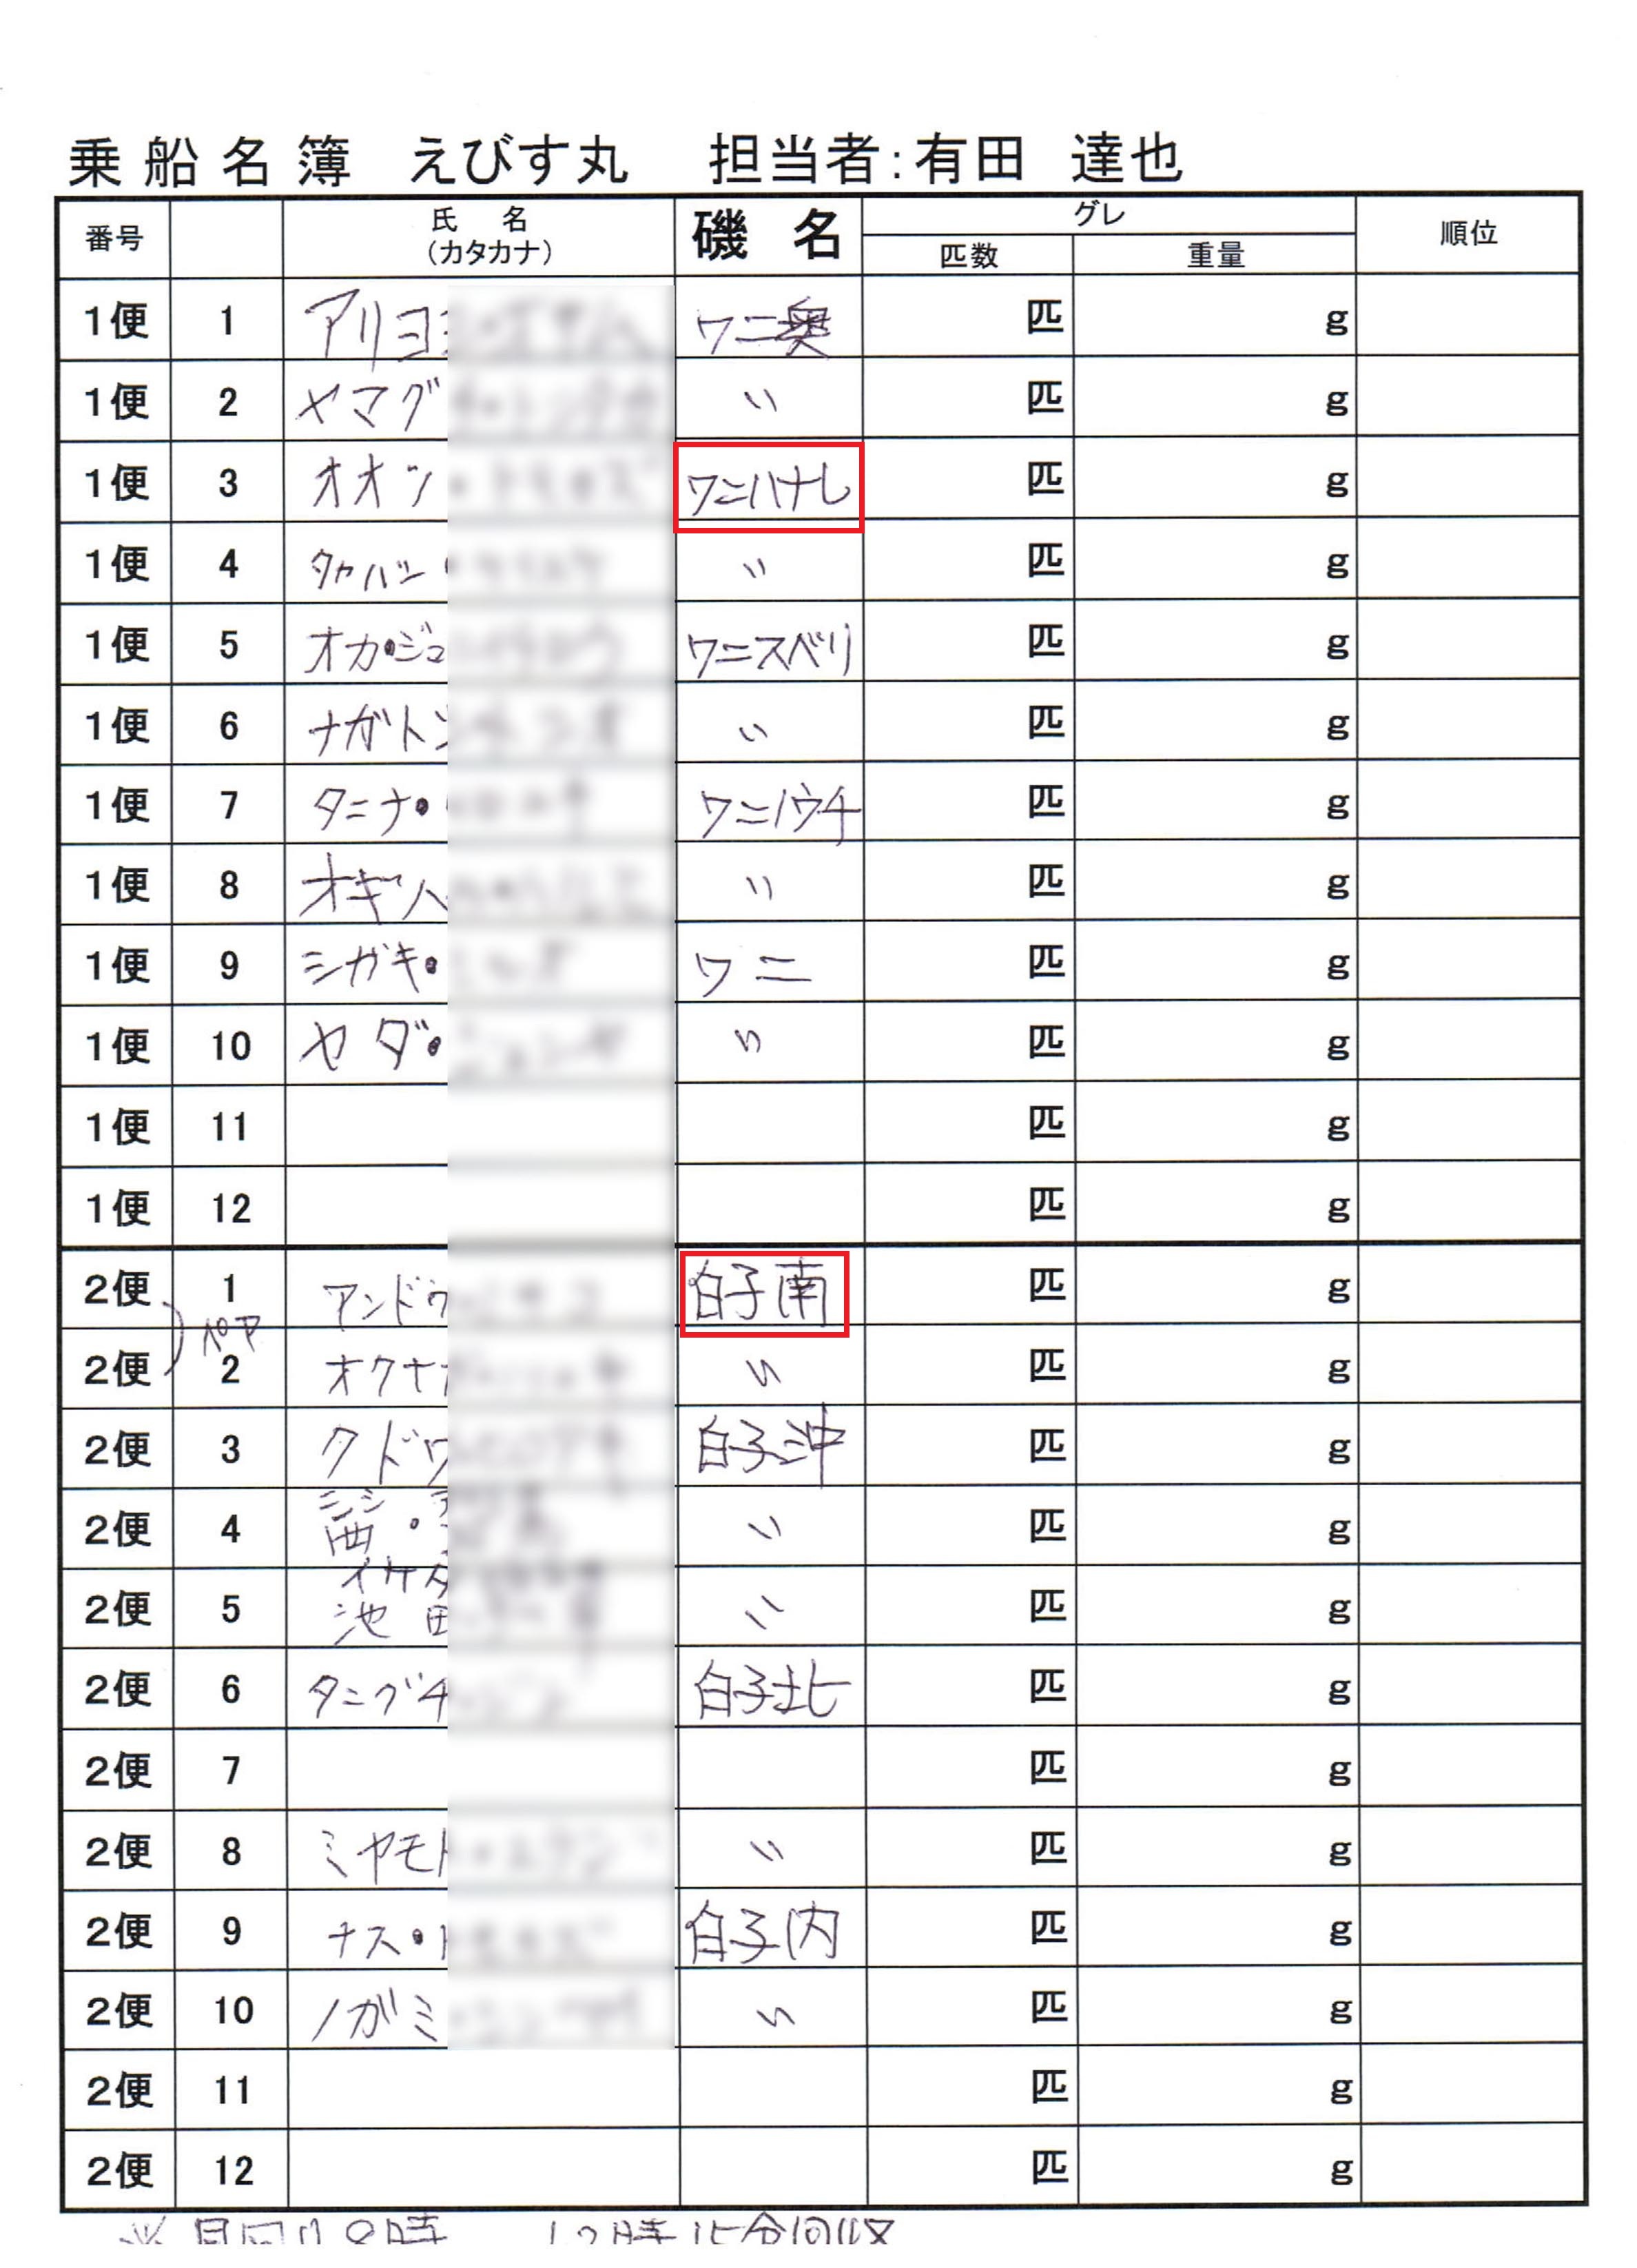 乗船名簿 えびす丸 担当者:有田 達也
番号 氏名 (カタカナ) 磯名 グレ 匹数 重量 順位
1便 1 アリヨ ワニ奥 匹 g
1便 2 ヤマグ 〃 匹 g
1便 3 オオツ ワニハナレ 匹 g
1便 4 タカハシ 〃 匹 g
1便 5 オカ・ジュ ワニスベリ 匹 g
1便 6 ナガト 〃 匹 g
1便 7 タニナ・ ワニノウチ 匹 g
1便 8 オギハ 〃 匹 g
1便 9 シガキ・ ワニ 匹 g
1便 10 ヤダ・ 〃 匹 g
1便 11 匹 g
1便 12 匹 g
2便 1 アンドウ 白子南 匹 g
ペア
2便 2 オクナ 〃 匹 g
2便 3 クドウ 白子沖 匹 g
2便 4 西・ 〃 匹 g
イケダ
2便 5 池田 〃 匹 g
2便 6 タニグチ 白子北 匹 g
2便 7 匹 g
2便 8 ミヤモト 〃 匹 g
2便 9 ナス・ト 白子内 匹 g
2便 10 ノガミ 〃 匹 g
2便 11 匹 g
2便 12 匹 g
8時 12時15分回収